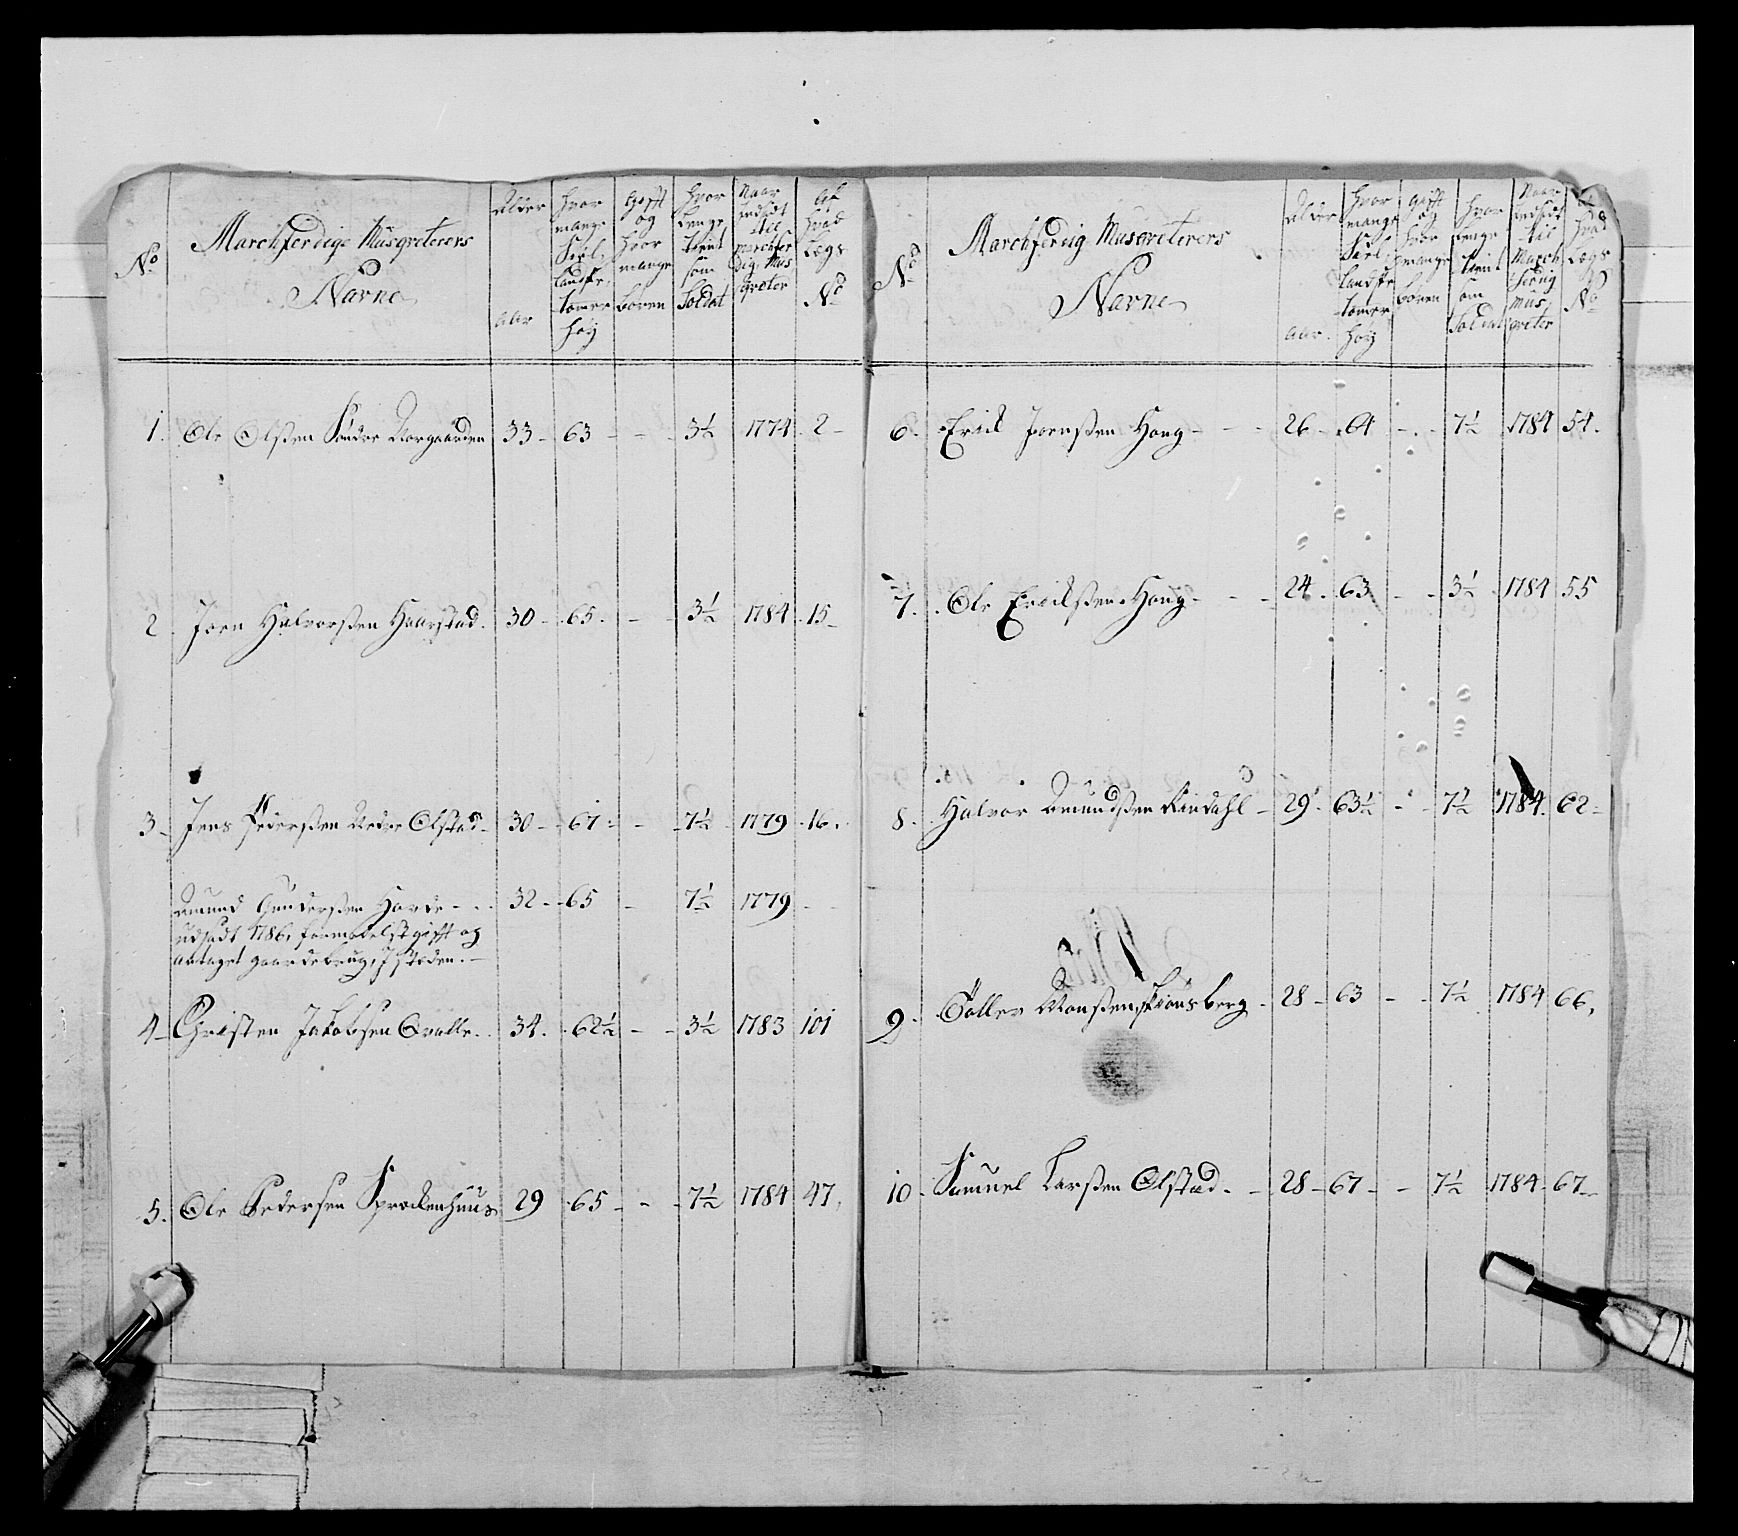 No
Marchferdige Musqveterers
Navne
Alder
Aar
Hvor
mange
Siel-
landske
tomer
høy
Gift
og
hvor
mange
børen
Hvor
lenge
tient
som
Soldat
Naar
indsadt
til
Marchfer
dig Mus
qveter
Af
hvad
Lægs
No
1. Ole Olssen Søndre Norgaarden 33 - 63 - - 3½ 1774. 2 -
2. Joen Halvorssen Haarstad. 30 - 65. - - 3½ 1784 15 -
3. Jens Pederssen Nedre Olstad 30 - 67 - - 7½ 1779 16.
Amund Gunderssen Hovde - - 32 - 65 - 7½ 1779 - -
udsadt 1786, formedelst gift og
antaget gaardebrug, J steden. -
4. Christen Jakobsen Qvalle. 34. 62½ - - 3½ 1783 101
5. Ole Pedersen Sprækenhuus 29 65 - - 7½ 1784 47.
No
Marchferdig Musqveterers
Navne
Alder
Aar.
Hvor
mange
Siel-
landske
tomer
høy
Gift
og
hvor
mange
børen
Hvor
lenge
tient
som
Soldat
Naar
indsadt
til
March
ferdig
Mus-
qveter
Af
hvad
Lægs
No
6. Erick Joenssen Houg - - - 26 - 64 - - 7½ 1784 54.
7. Ole Erickssen Houg - - - 24. 63 - - 3½ 1784 55
8. Halvor Amundssen Rindahl - 29. 63½ - - 7½ 1784. 62 -
9. Tollev Monssen Skiønsberg - 28 - 63 - - 7½ 1784 66.
10. Samuel Larssen Olstad. - 28 - 67 - - 7½ 1784 - 67 -